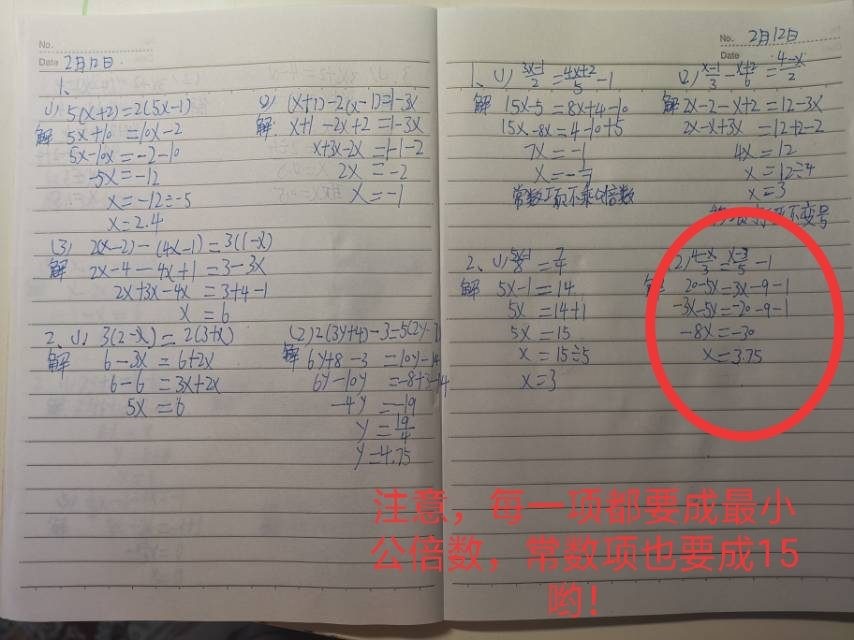 No.
Date 2月12日
1、
(1) 5(x+2)=2(5x-1)
解 5x+10=10x-2
5x-10x=-2-10
-5x=-12
x=-12÷-5
x=2.4
(2) (x+1)-2(x-1)=1-3x
解 x+1-2x+2=1-3x
x+3x-2x=1-1-2
2x=-2
x=-1
(3) 2(x-2)-(4x-1)=3(1-x)
解 2x-4-4x+1=3-3x
2x+3x-4x=3+4-1
x=6
2、(1) 3(2-x)=2(3+x)
解 6-3x=6+2x
6-6=3x+2x
5x=6
(2) 2(3y+4)-3=5(2y-
解 6y+8-3=10y-14
6y-10y=-8+3-14
-4y=-19
y=19/4
y=4.75
No.
Date 2月12日
1、(1) 3x-1/2=4x+2/5-1
解 15x-5=8x+4-10
15x-8x=4-10+5
7x=-1
x=-1/7
常数项不乘倍数
(2) x-1/3-x+2/6=4-x/2
解 2x-2-x+2=12-3x
2x-x+3x=12+2-2
4x=12
x=12÷4
x=3
不变号
2、(1) 5x-1/8=7/4
解 5x-1=14
5x=14+1
5x=15
x=15÷5
x=3
(2) 4-x/3=x-3/5-1
解 20-5x=3x-9-1
-3x-5x=-20-9-1
-8x=-30
x=3.75
注意，每一项都要成最小
公倍数，常数项也要成15
哟！